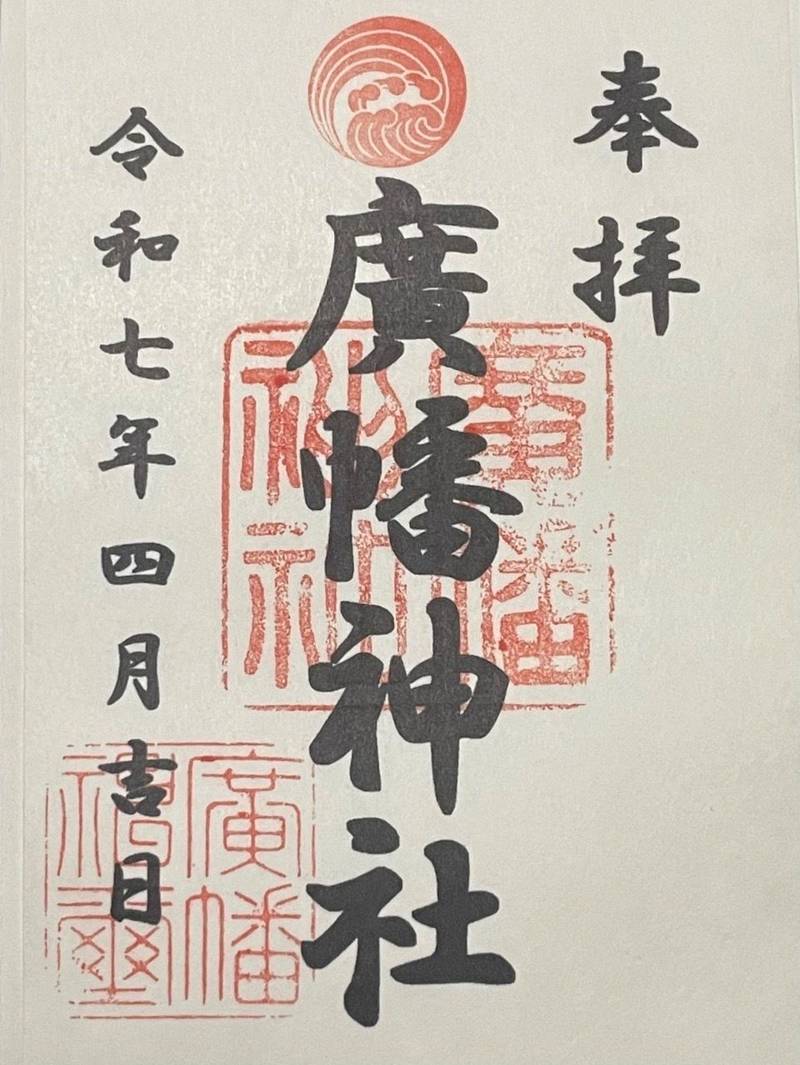 奉拝
廣幡神社
廣幡
神社
令和七年四月吉日
廣幡
禰璽